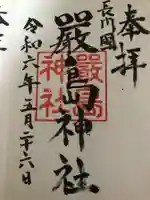 奉拝
長州國
嚴島神社
嚴島
神社
令和六年五月二十六日